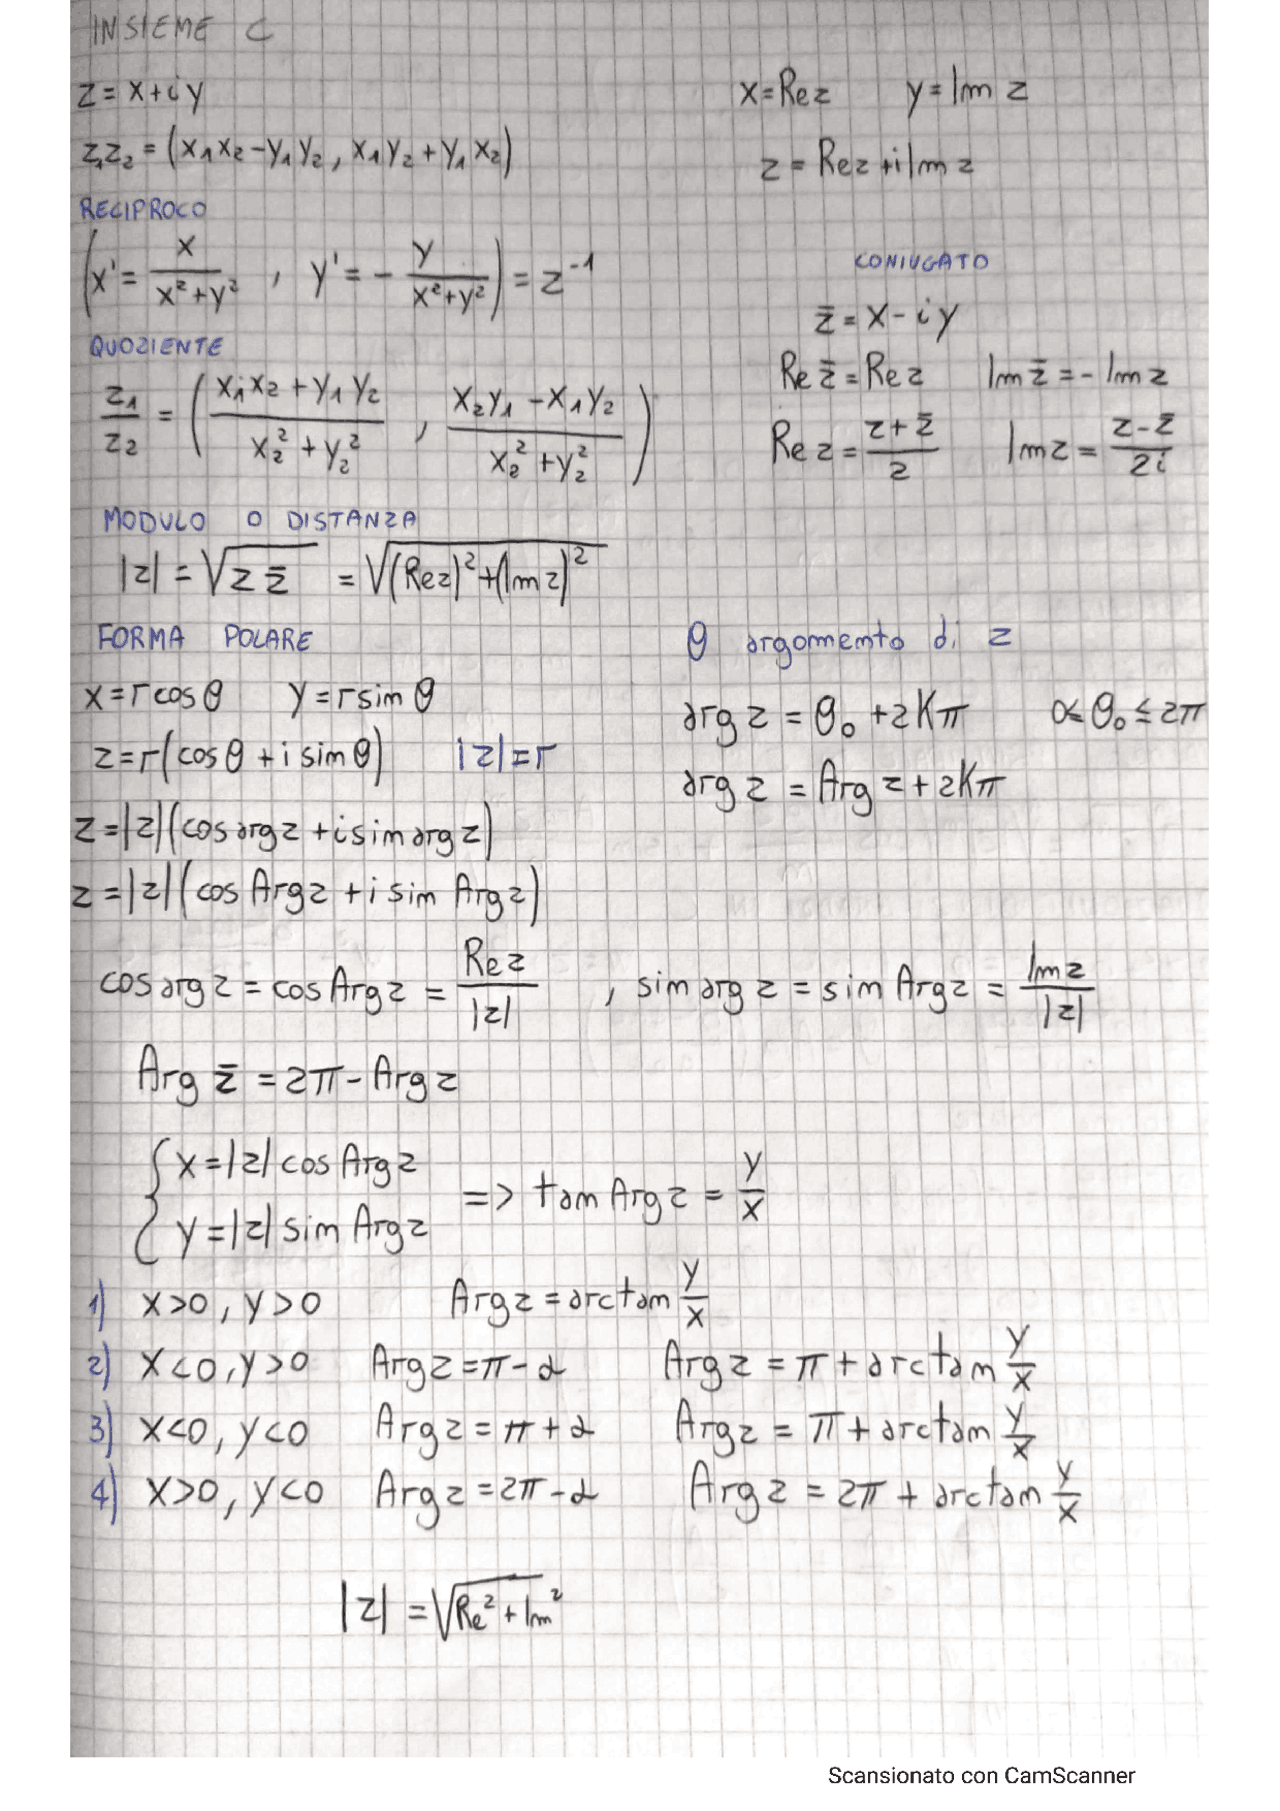 INSIEME C
z = x+iy
x = Re z   y = Im z
z₁z₂ = (x₁x₂ - y₁y₂, x₁y₂ + y₁x₂)
z = Re z + i Im z
RECIPROCO
(x' = x/(x²+y²), y' = - y/(x²+y²)) = z⁻¹
CONIUGATO
z̄ = x - iy
QUOZIENTE
Re z̄ = Re z   Im z̄ = - Im z
z₁/z₂ = ((x₁x₂ + y₁y₂)/(x₂² + y₂²), (x₂y₁ - x₁y₂)/(x₂² + y₂²))
Re z = (z + z̄)/2   Im z = (z - z̄)/2i
MODULO O DISTANZA
|z| = √(z z̄) = √((Re z)² + (Im z)²)
FORMA POLARE
θ argomento di z
x = r cos θ   y = r sin θ
arg z = θ₀ + 2Kπ   0< θ₀ ≤ 2π
z = r(cos θ + i sin θ)   |z| = r
arg z = Arg z + 2Kπ
z = |z|(cos arg z + i sin arg z)
z = |z|(cos Arg z + i sin Arg z)
cos arg z = cos Arg z = Re z/|z| , sin arg z = sin Arg z = Im z/|z|
Arg z̄ = 2π - Arg z
{ x = |z| cos Arg z
{ y = |z| sin Arg z
=> tan Arg z = y/x
1) x>0, y>0   Arg z = arctan y/x
2) x<0, y>0   Arg z = π - α   Arg z = π + arctan y/x
3) x<0, y<0   Arg z = π + α   Arg z = π + arctan y/x
4) x>0, y<0   Arg z = 2π - α   Arg z = 2π + arctan y/x
|z| = √(Re² + Im²)
Scansionato con CamScanner